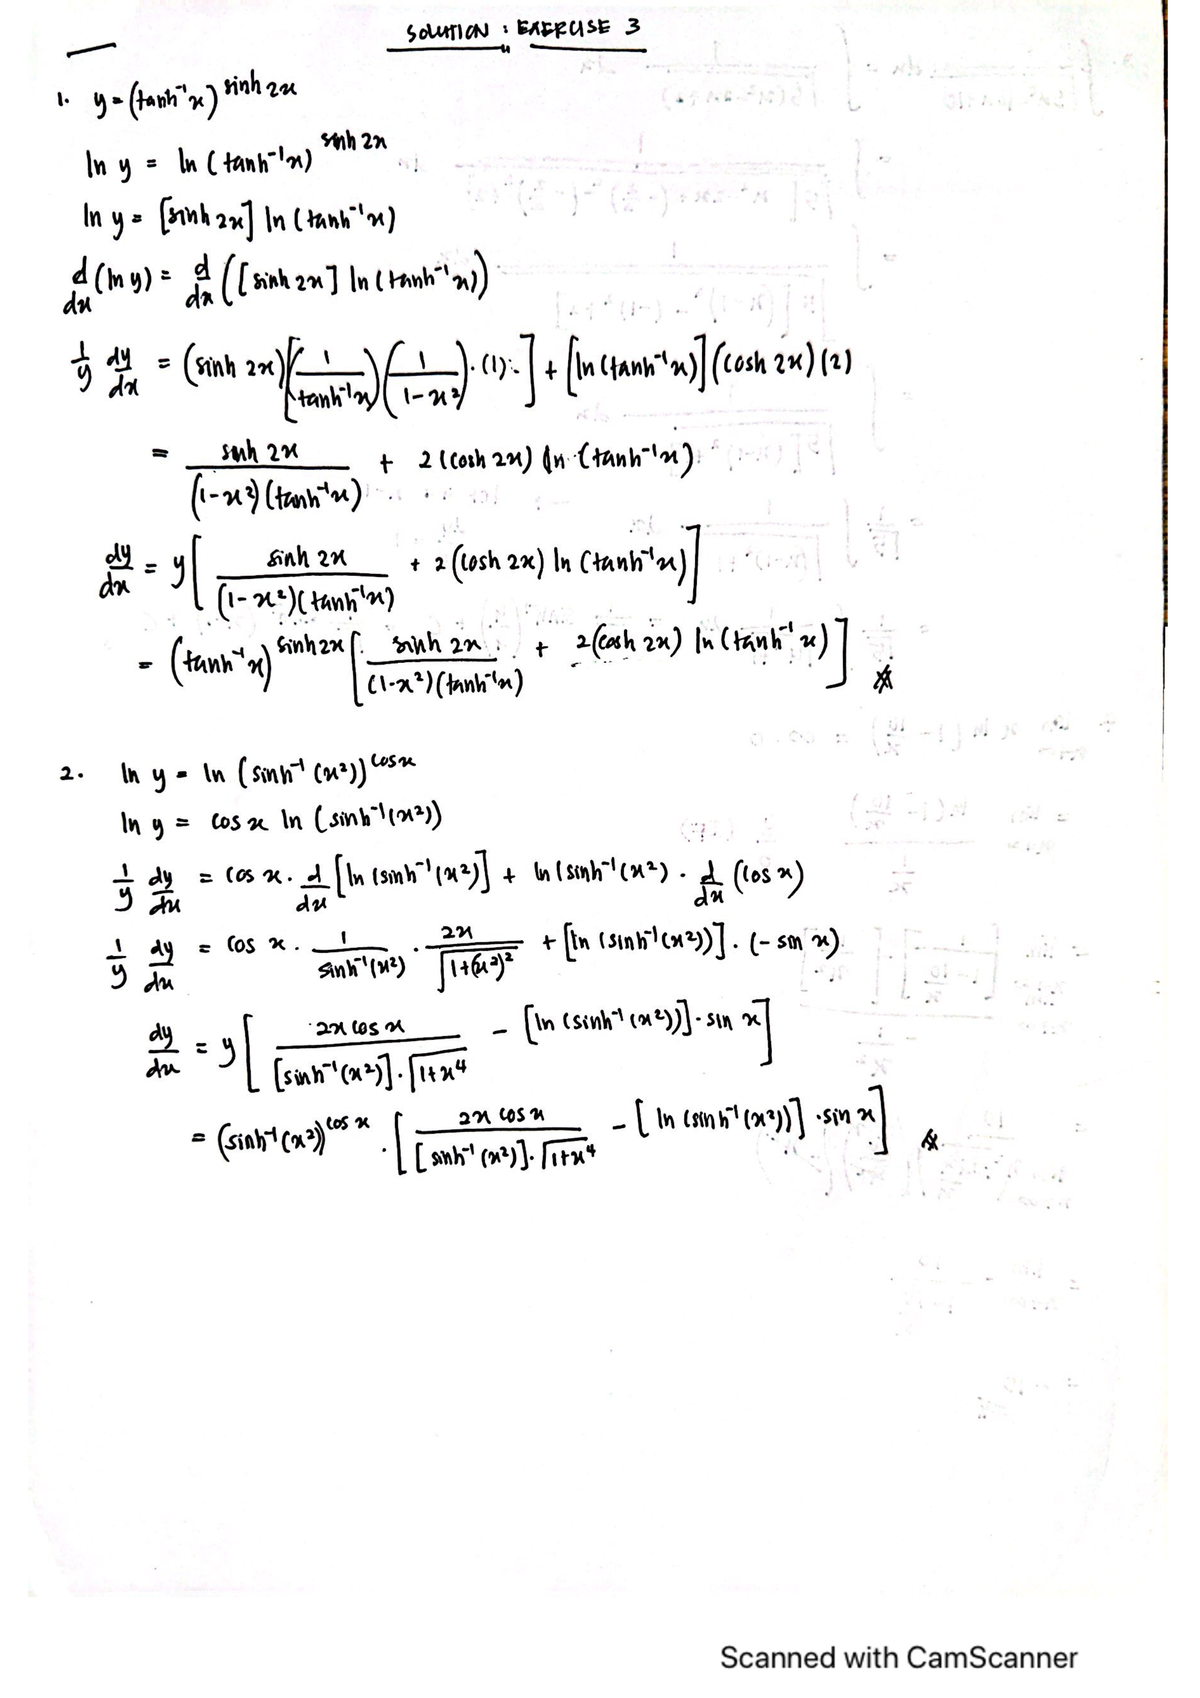 SOLUTION : EXERCISE 3
1. y = (tanh⁻¹x)^sinh 2x
ln y = ln (tanh⁻¹x)^sinh 2x
ln y = [sinh 2x] ln (tanh⁻¹x)
d/dx (ln y) = d/dx ([sinh 2x] ln (tanh⁻¹x))
1/y dy/dx = (sinh 2x)[(1/tanh⁻¹x)(1/(1-x²)).(1).] + [ln (tanh⁻¹x)](cosh 2x)(2)
= sinh 2x/((1-x²)(tanh⁻¹x)) + 2(cosh 2x) ln (tanh⁻¹x)
dy/dx = y[sinh 2x/((1-x²)(tanh⁻¹x)) + 2(cosh 2x) ln (tanh⁻¹x)]
= (tanh⁻¹x)^sinh 2x [sinh 2x/((1-x²)(tanh⁻¹x)) + 2(cosh 2x) ln (tanh⁻¹x)]
2. ln y = ln (sinh⁻¹(x²))^cos x
ln y = cos x ln (sinh⁻¹(x²))
1/y dy/dx = cos x . d/dx [ln (sinh⁻¹(x²)] + ln (sinh⁻¹(x²) . d/dx (cos x)
1/y dy/dx = cos x . 1/sinh⁻¹(x²) . 2x/√(1+(x²)²) + [ln (sinh⁻¹(x²))] . (- sin x)
dy/dx = y[2x cos x/([sinh⁻¹(x²)].√(1+x⁴)) - [ln (sinh⁻¹(x²))] . sin x]
= (sinh⁻¹(x²))^cos x . [2x cos x/([sinh⁻¹(x²)].√(1+x⁴)) - [ln (sinh⁻¹(x²))] . sin x]
Scanned with CamScanner